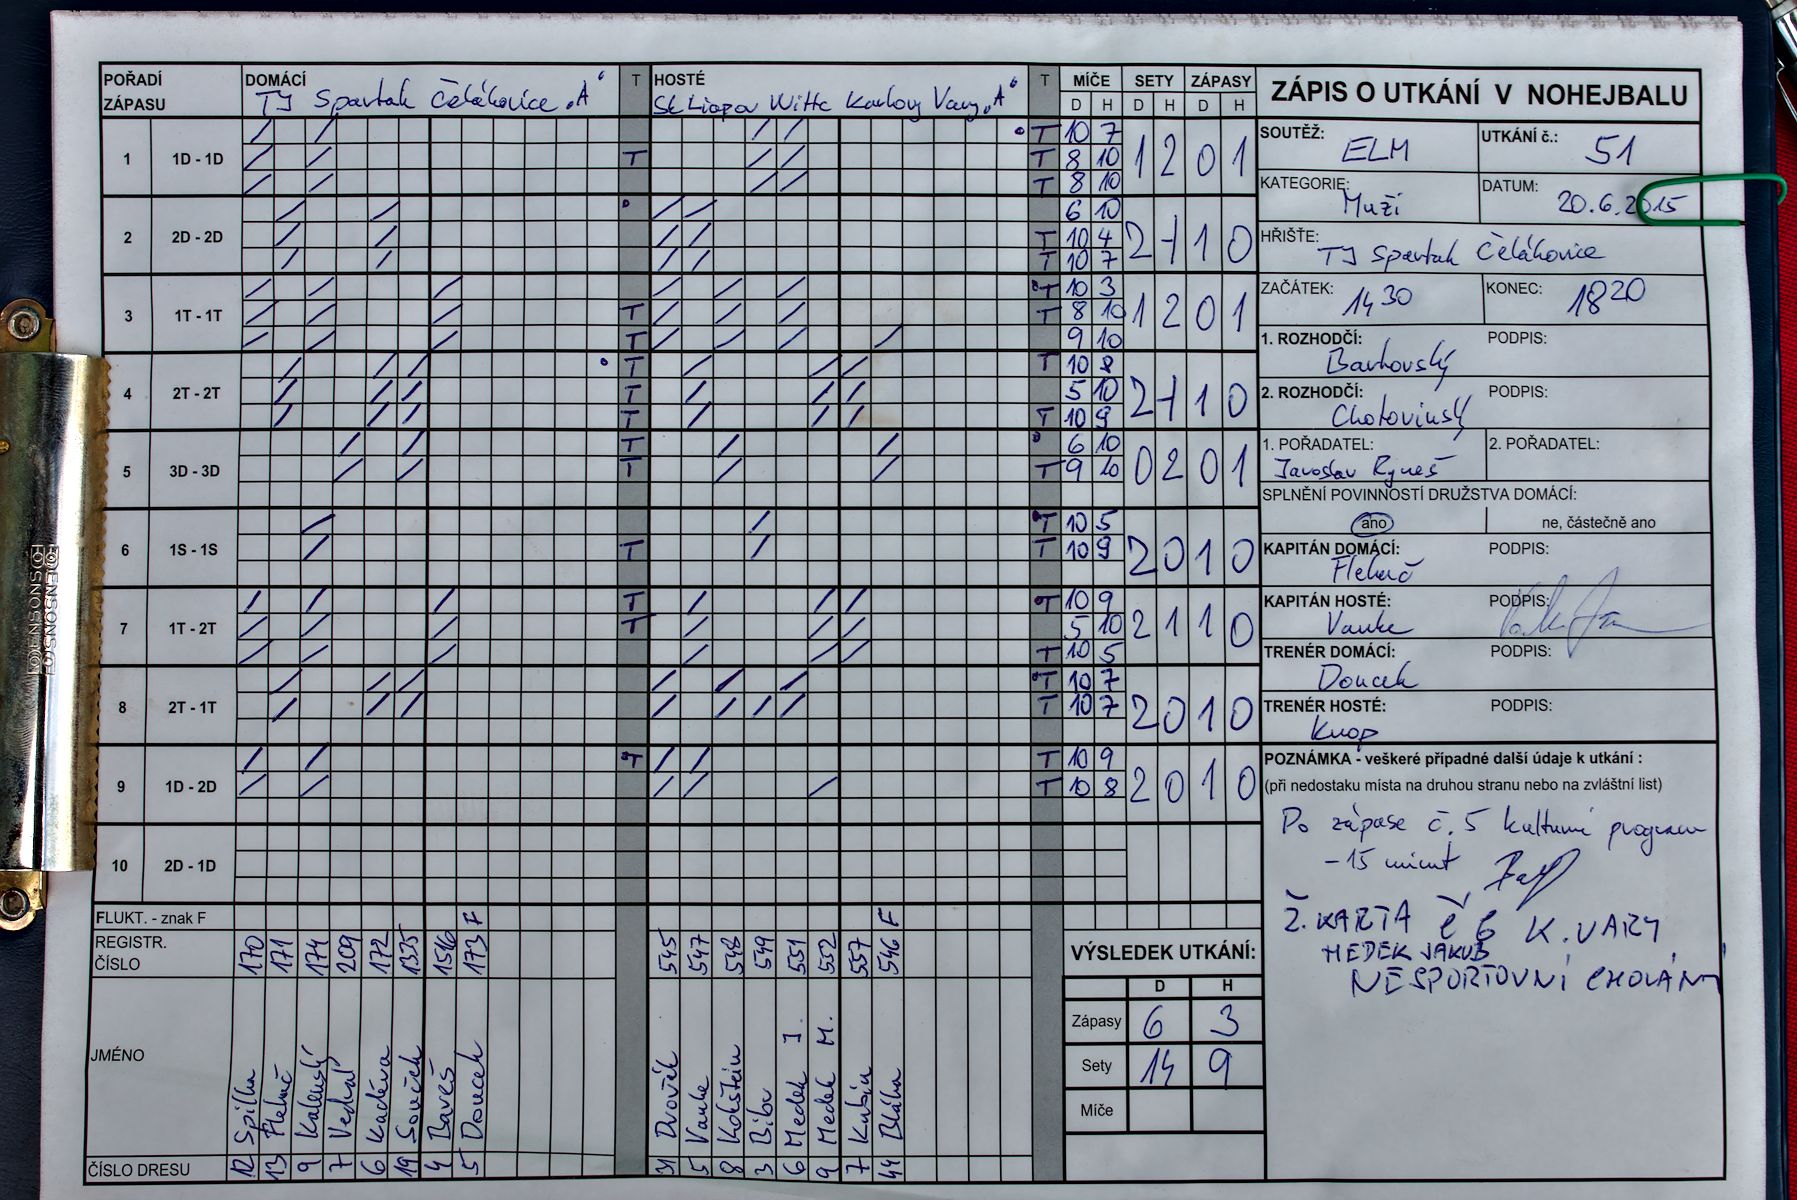 ZÁPIS O UTKÁNÍ V NOHEJBALU
POŘADÍ ZÁPASU DOMÁCÍ T HOSTÉ T MÍČE SETY ZÁPASY
TJ Spartak Čelákovice „A“ SK Liapor Witte Karlovy Vary „A“ D H D H D H
1 1D - 1D T 10 7 1 2 0 1
T T 8 10
T 8 10
2 2D - 2D 6 10 2 1 1 0
T 10 4
T 10 7
3 1T - 1T T 10 3 1 2 0 1
T T 8 10
T 9 10
4 2T - 2T T T 10 8 2 1 1 0
T 5 10
T T 10 9
5 3D - 3D T 6 10 0 2 0 1
T T 9 10
6 1S - 1S T 10 5 2 0 1 0
T T 10 9
7 1T - 2T T T 10 9 2 1 1 0
T 5 10
T 10 5
8 2T - 1T T 10 7 2 0 1 0
T 10 7
9 1D - 2D T T 10 9 2 0 1 0
T 10 8
10 2D - 1D
FLUKT. - znak F F F
REGISTR. ČÍSLO 170 171 174 209 172 1335 1546 173 545 547 548 549 551 552 557 546
JMÉNO Spilka Flekač Kalenský Vedral Kadeřa Souček Bareš Doucek Dvořák Vanke Kokštein Bibr Medek J. Medek M. Kubín Bláha
ČÍSLO DRESU 12 13 9 7 6 19 4 5 31 5 8 3 6 9 7 44
VÝSLEDEK UTKÁNÍ:
D H
Zápasy 6 3
Sety 14 9
Míče
SOUTĚŽ: ELM UTKÁNÍ č.: 51
KATEGORIE: Muži DATUM: 20.6.2015
HŘIŠTĚ: TJ Spartak Čelákovice
ZAČÁTEK: 14 30 KONEC: 18 20
1. ROZHODČÍ: PODPIS:
Barhovský
2. ROZHODČÍ: PODPIS:
Chotovinský
1. POŘADATEL: 2. POŘADATEL:
Jaroslav Ryneš
SPLNĚNÍ POVINNOSTÍ DRUŽSTVA DOMÁCÍ:
ano ne, částečně ano
KAPITÁN DOMÁCÍ: PODPIS:
Flekač
KAPITÁN HOSTÉ: PODPIS:
Vanke
TRENÉR DOMÁCÍ: PODPIS:
Doucek
TRENÉR HOSTÉ: PODPIS:
Knop
POZNÁMKA - veškeré případné další údaje k utkání :
(při nedostaku místa na druhou stranu nebo na zvláštní list)
Po zápase č. 5 kulturní program
- 15 minut
Ž. KARTA č 6 K. VARY
MEDEK JAKUB
NESPORTOVNÍ CHOVÁNÍ
SONSNED